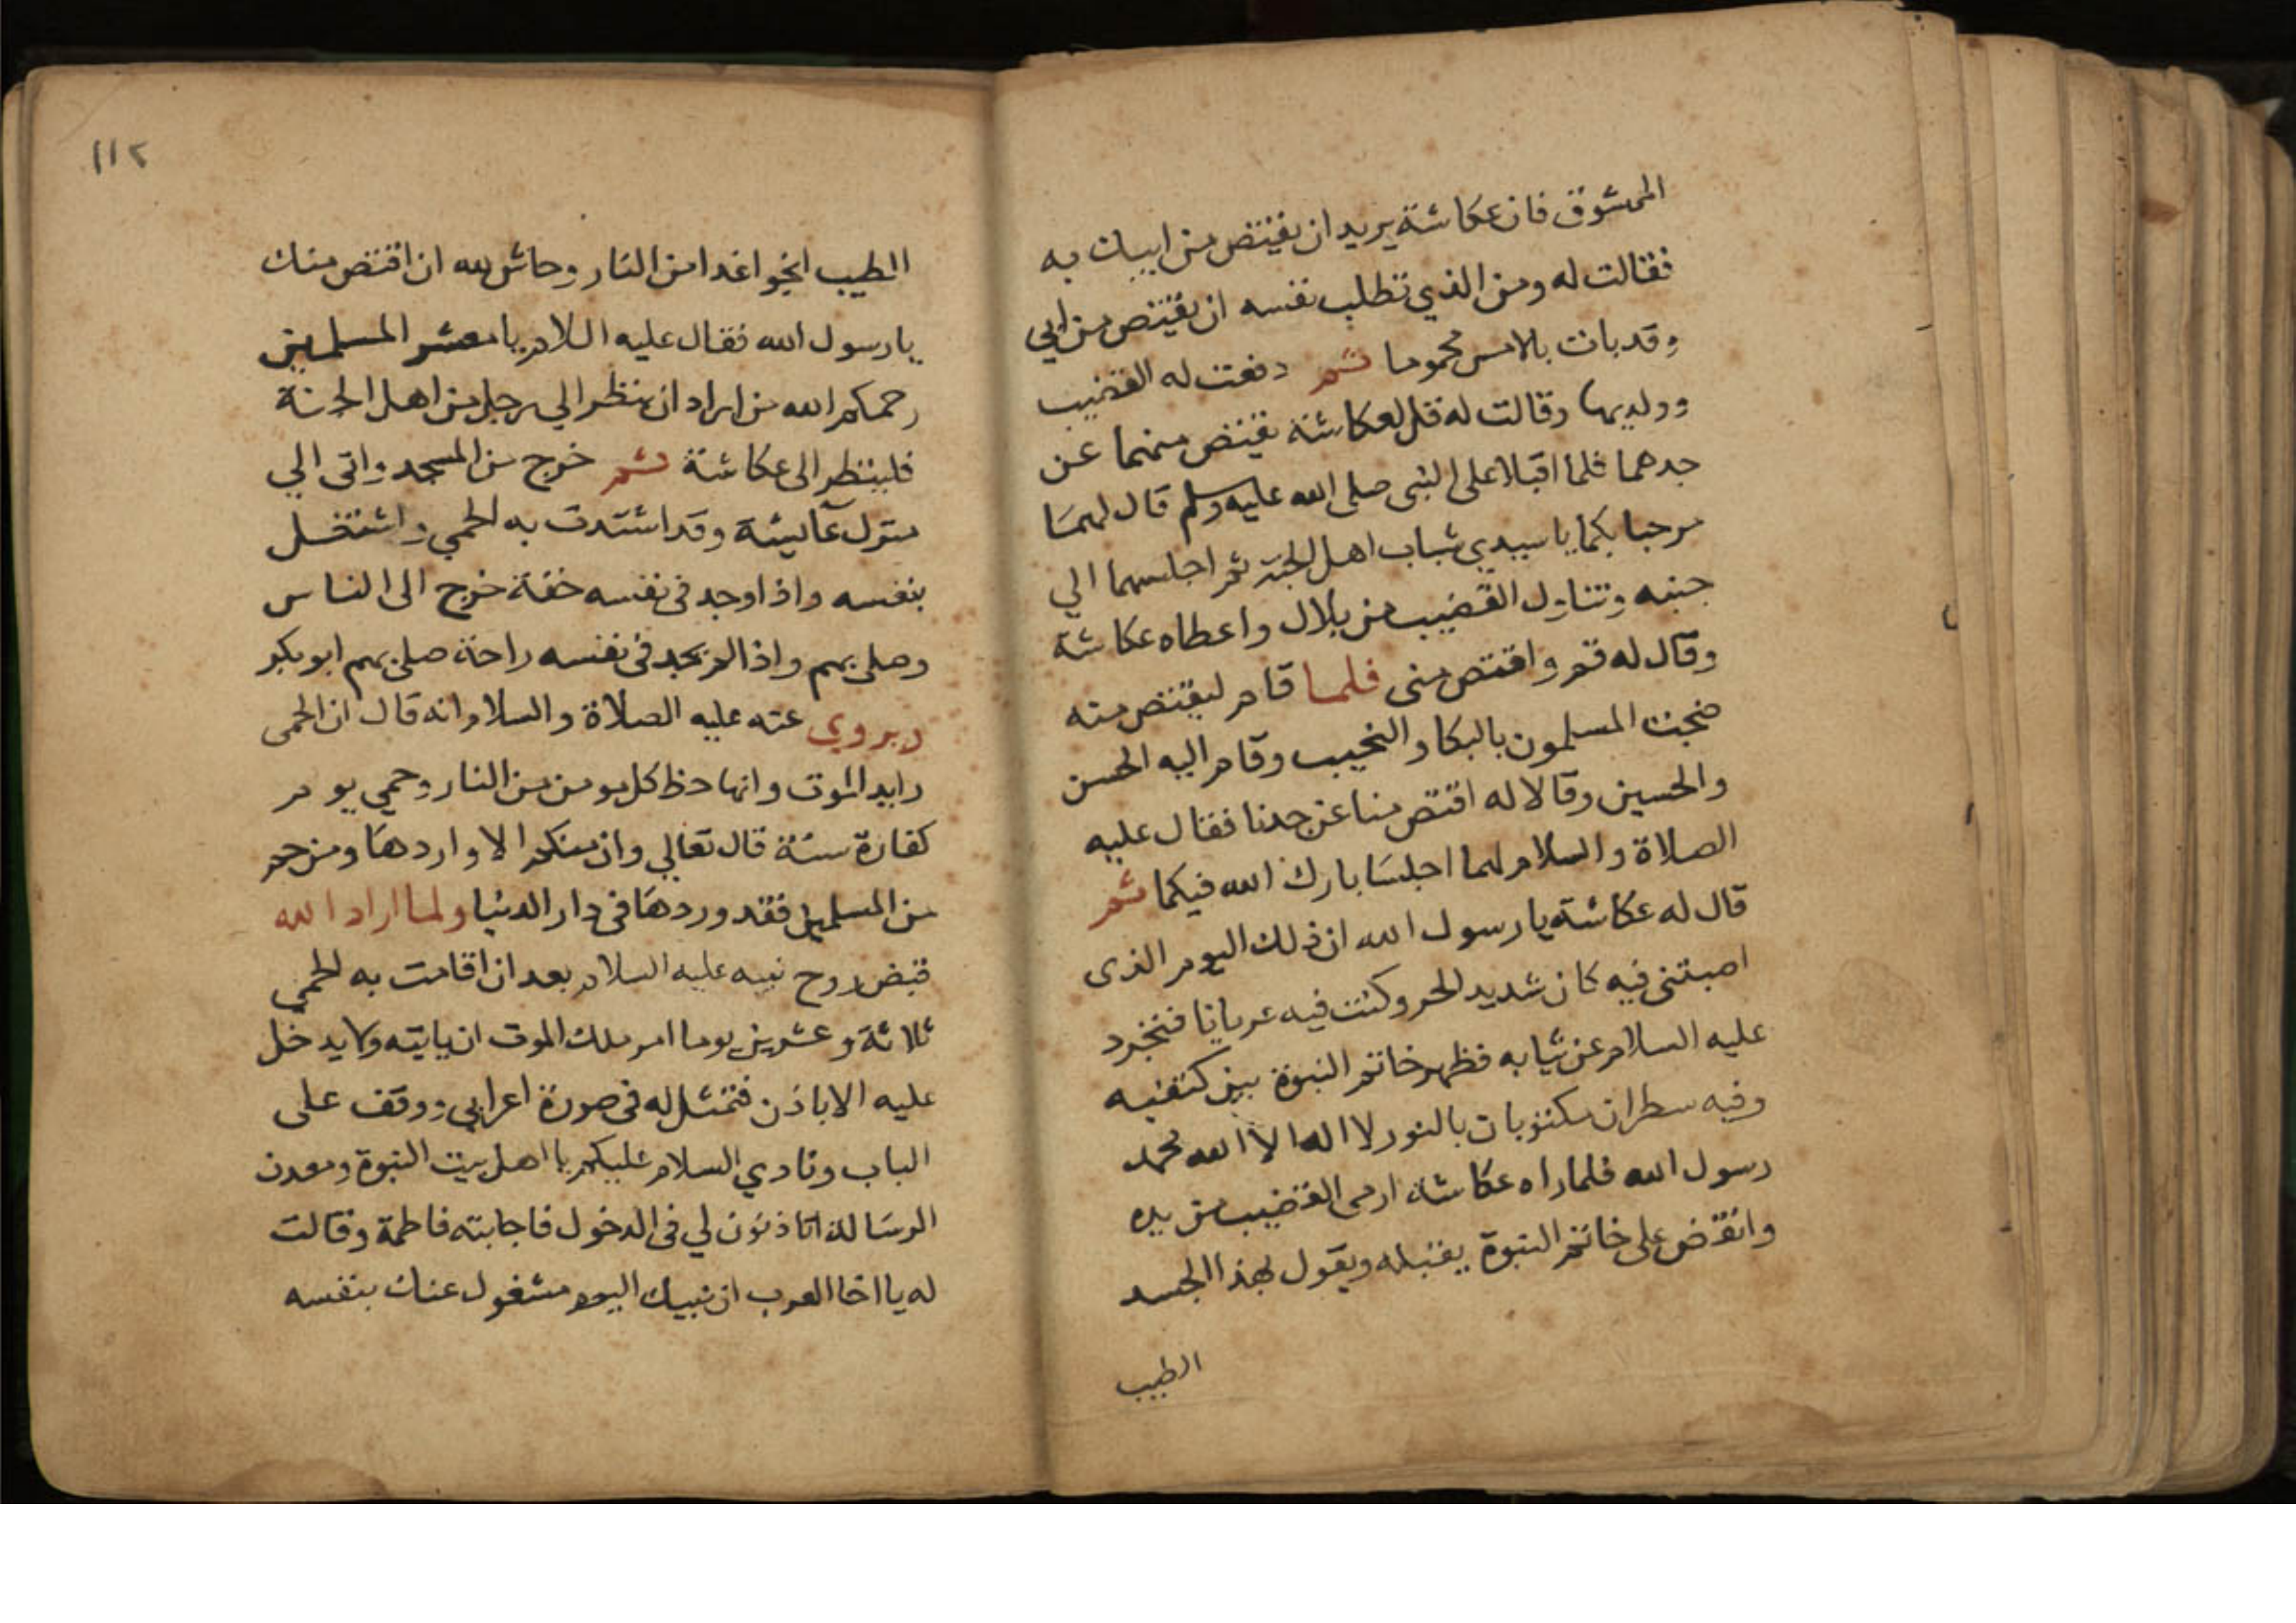 الممشوق فان عكاشة يريد ان يقتص من ابيك به
فقالت له ومن الذي تطلب نفسه ان يقتص من ابي
وقد بات بالامس محموما ثم دفعت له القضيب
وولديها وقالت له قل لعكاشة يقتص منهما عن
جدهما فلما اقبلا على النبى صلى الله عليه وسلم قال لهما
مرحبا بكما يا سيدي شباب اهل الجنة ثم اجلسهما الي
جنبه وتناول القضيب من بلال واعطاه عكاشة
وقال له قم واقتص منى فلما قام ليقتص منه
ضجت المسلمون بالبكا والنحيب وقام اليه الحسن
والحسين وقالا له اقتص منا عن جدنا فقال عليه
الصلاة والسلام لهما اجلسا بارك الله فيكما ثم
قال له عكاشة يا رسول الله ان ذلك اليوم الذى
اصبتنى فيه كان شديد الحر وكنت فيه عريانا فتجرد
عليه السلام عن ثيابه فظهر خاتم النبوة بين كتفيه
وفيه سطران مكتوبات بالنور لا اله الا الله محمد
رسول الله فلما راه عكاشة ارمى القضيب من يده
وانقض على خاتم النبوة يقبله ويقول لهذا الجسد
الطيب
١١٢
الطيب انجوا غدا من النار وحاش لله ان اقتص منك
يا رسول الله فقال عليه السلام يا معشر المسلمين
رحمكم الله من اراد ان ينظر الي رجل من اهل الجنة
فلينظر الى عكاشة ثم خرج من المسجد واتى الي
منزل عآيشة وقد اشتدت به الحمي واشتغل
بنفسه واذا وجد فى نفسه خفة خرج الى الناس
وصلى بهم واذا لم يجد فى نفسه راحة صلى بهم ابو بكر
ويروي عنه عليه الصلاة والسلام انه قال ان الحمى
رايد الموت وانها حظ كل مومن من النار وحمي يوم
كفارة سنة قال تعالي وان منكم الا واردها ومن حم
من المسلمين فقد وردها فى دار الدنيا ولما اراد الله
قبض روح نبيه عليه السلام بعد ان اقامت به الحمي
ثلاثة وعشرين يوما امر ملك الموت ان ياتيه ولا يدخل
عليه الا باذن فتمثل له فى صورة اعرابي ووقف على
الباب ونادي السلام عليكم يا اهل بيت النبوة ومعدن
الرسالة اتاذنون لي فى الدخول فاجابته فاطمة وقالت
له يا اخا العرب ان نبيك اليوم مشغول عنك بنفسه